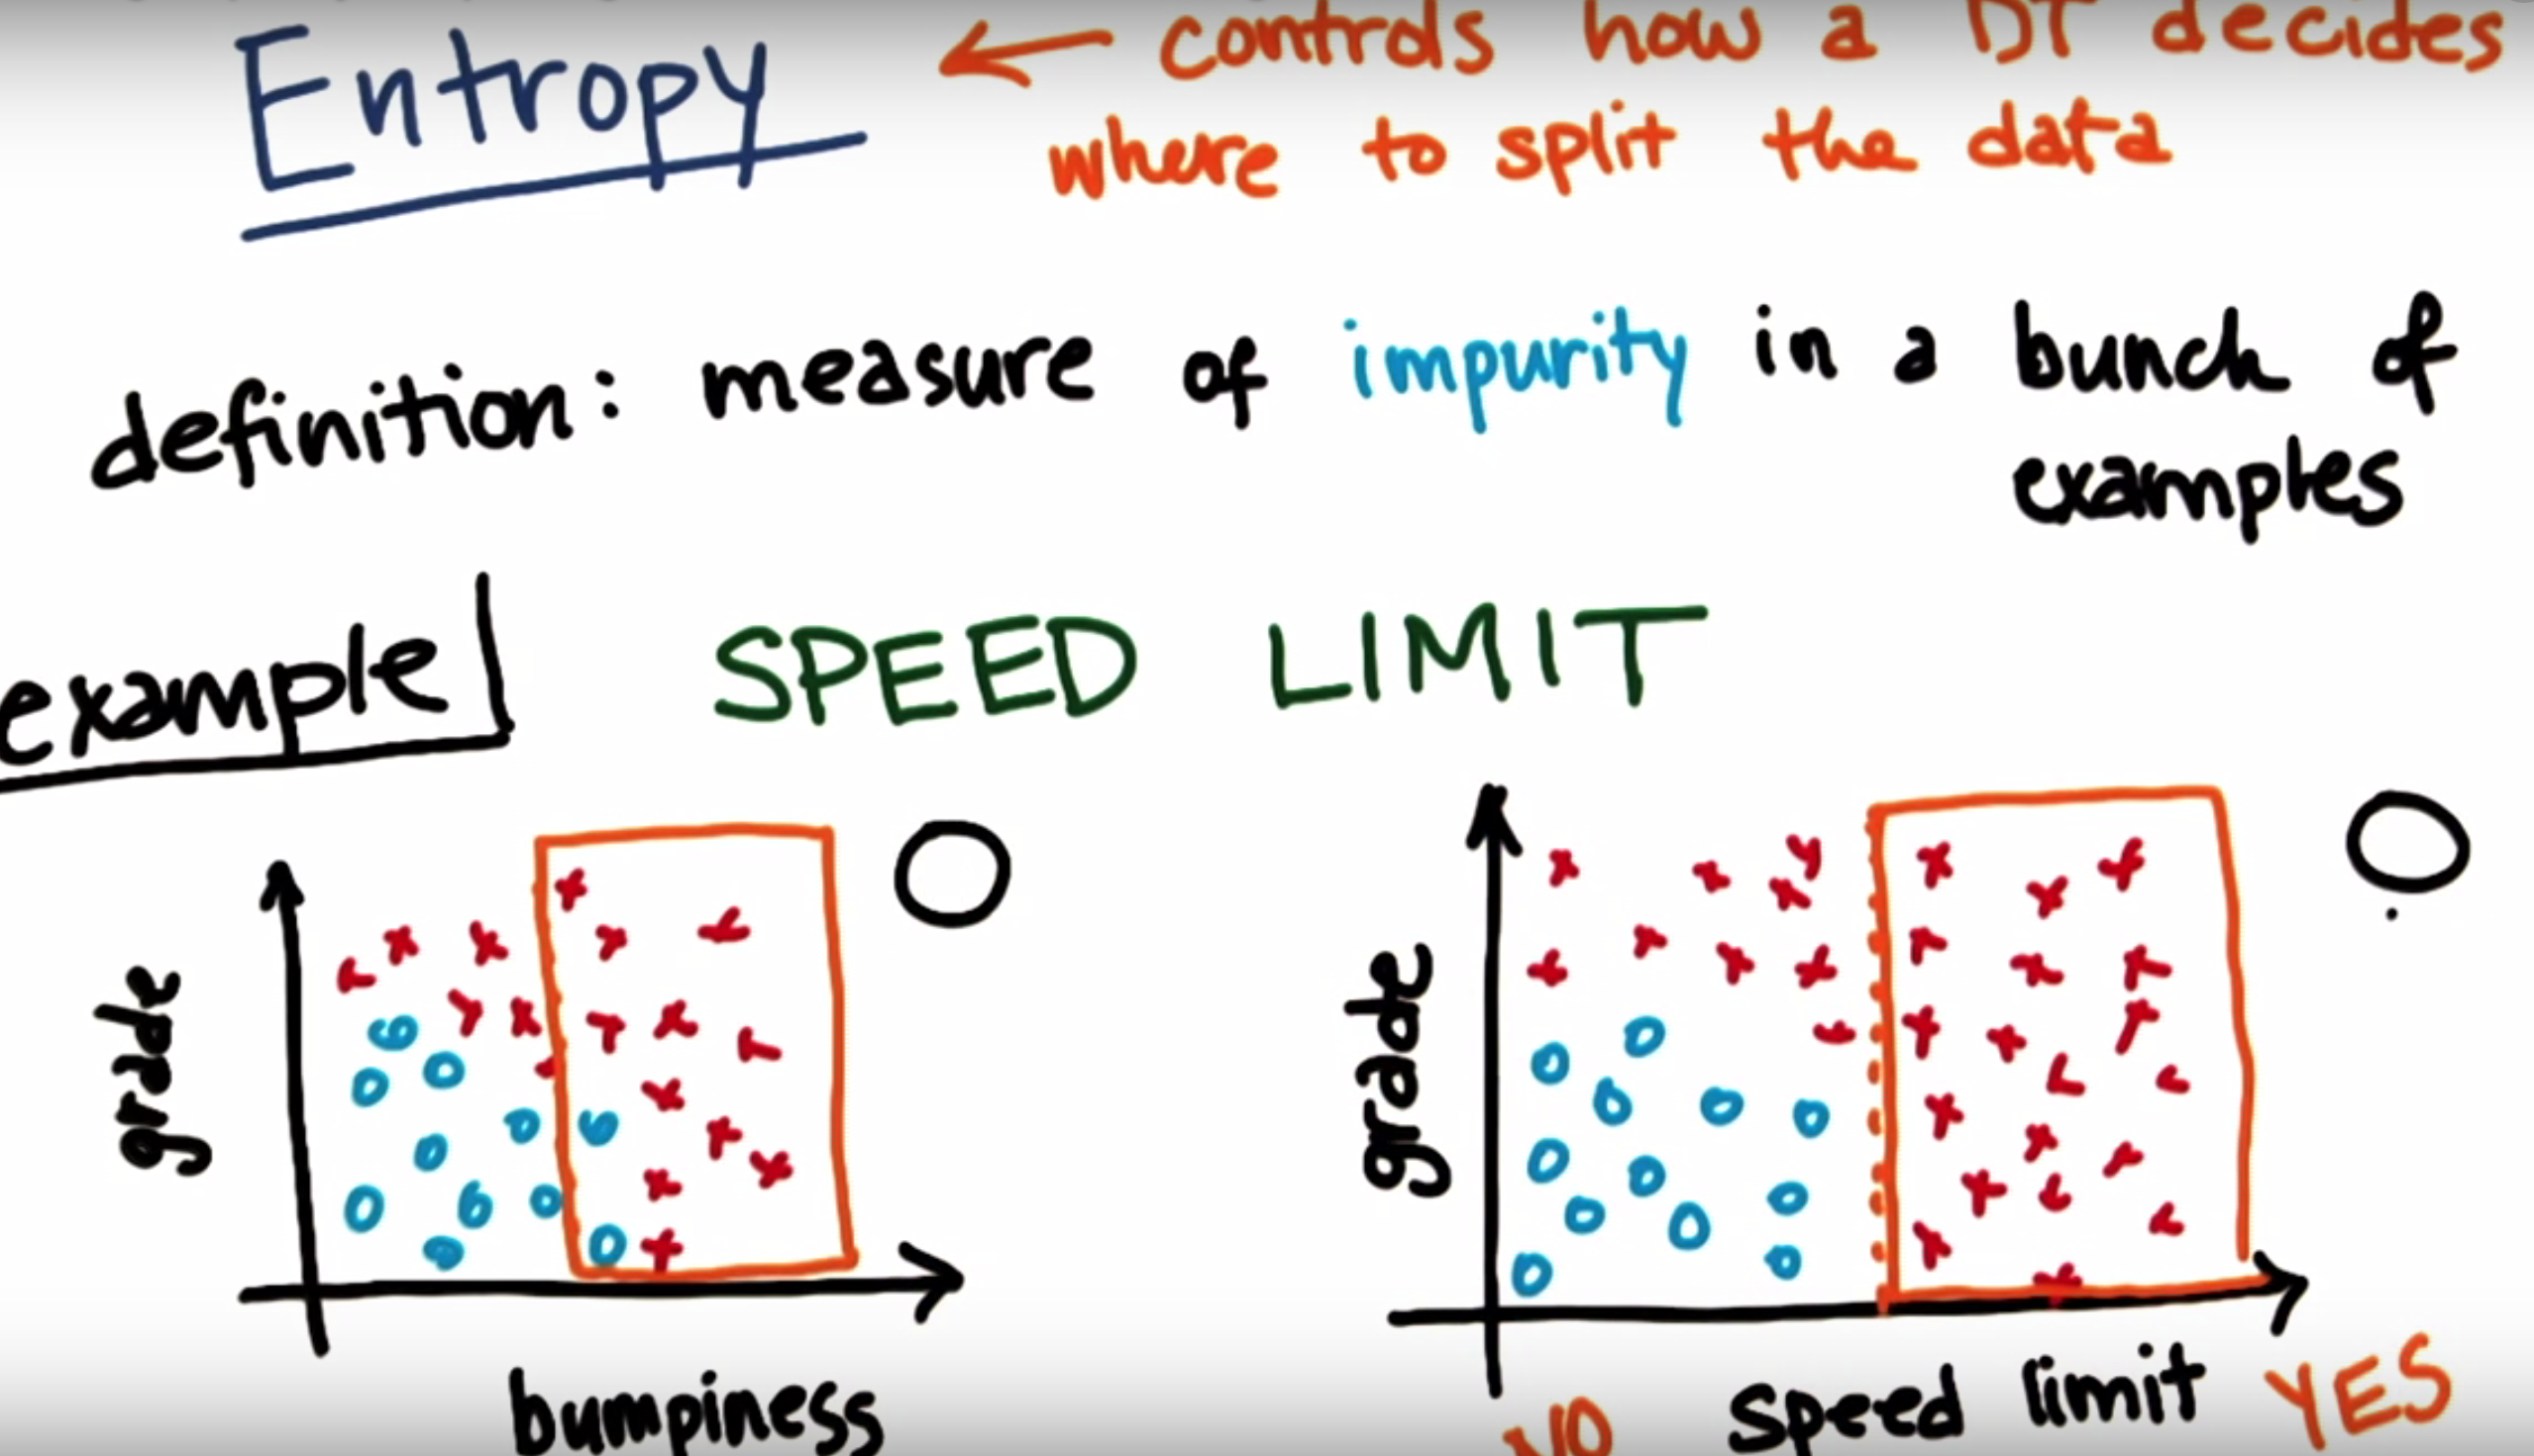 Entropy ← controls how a DT decides
where to split the data
definition: measure of impurity in a bunch of
examples
example
SPEED LIMIT
grade
bumpiness
grade
NO speed limit YES